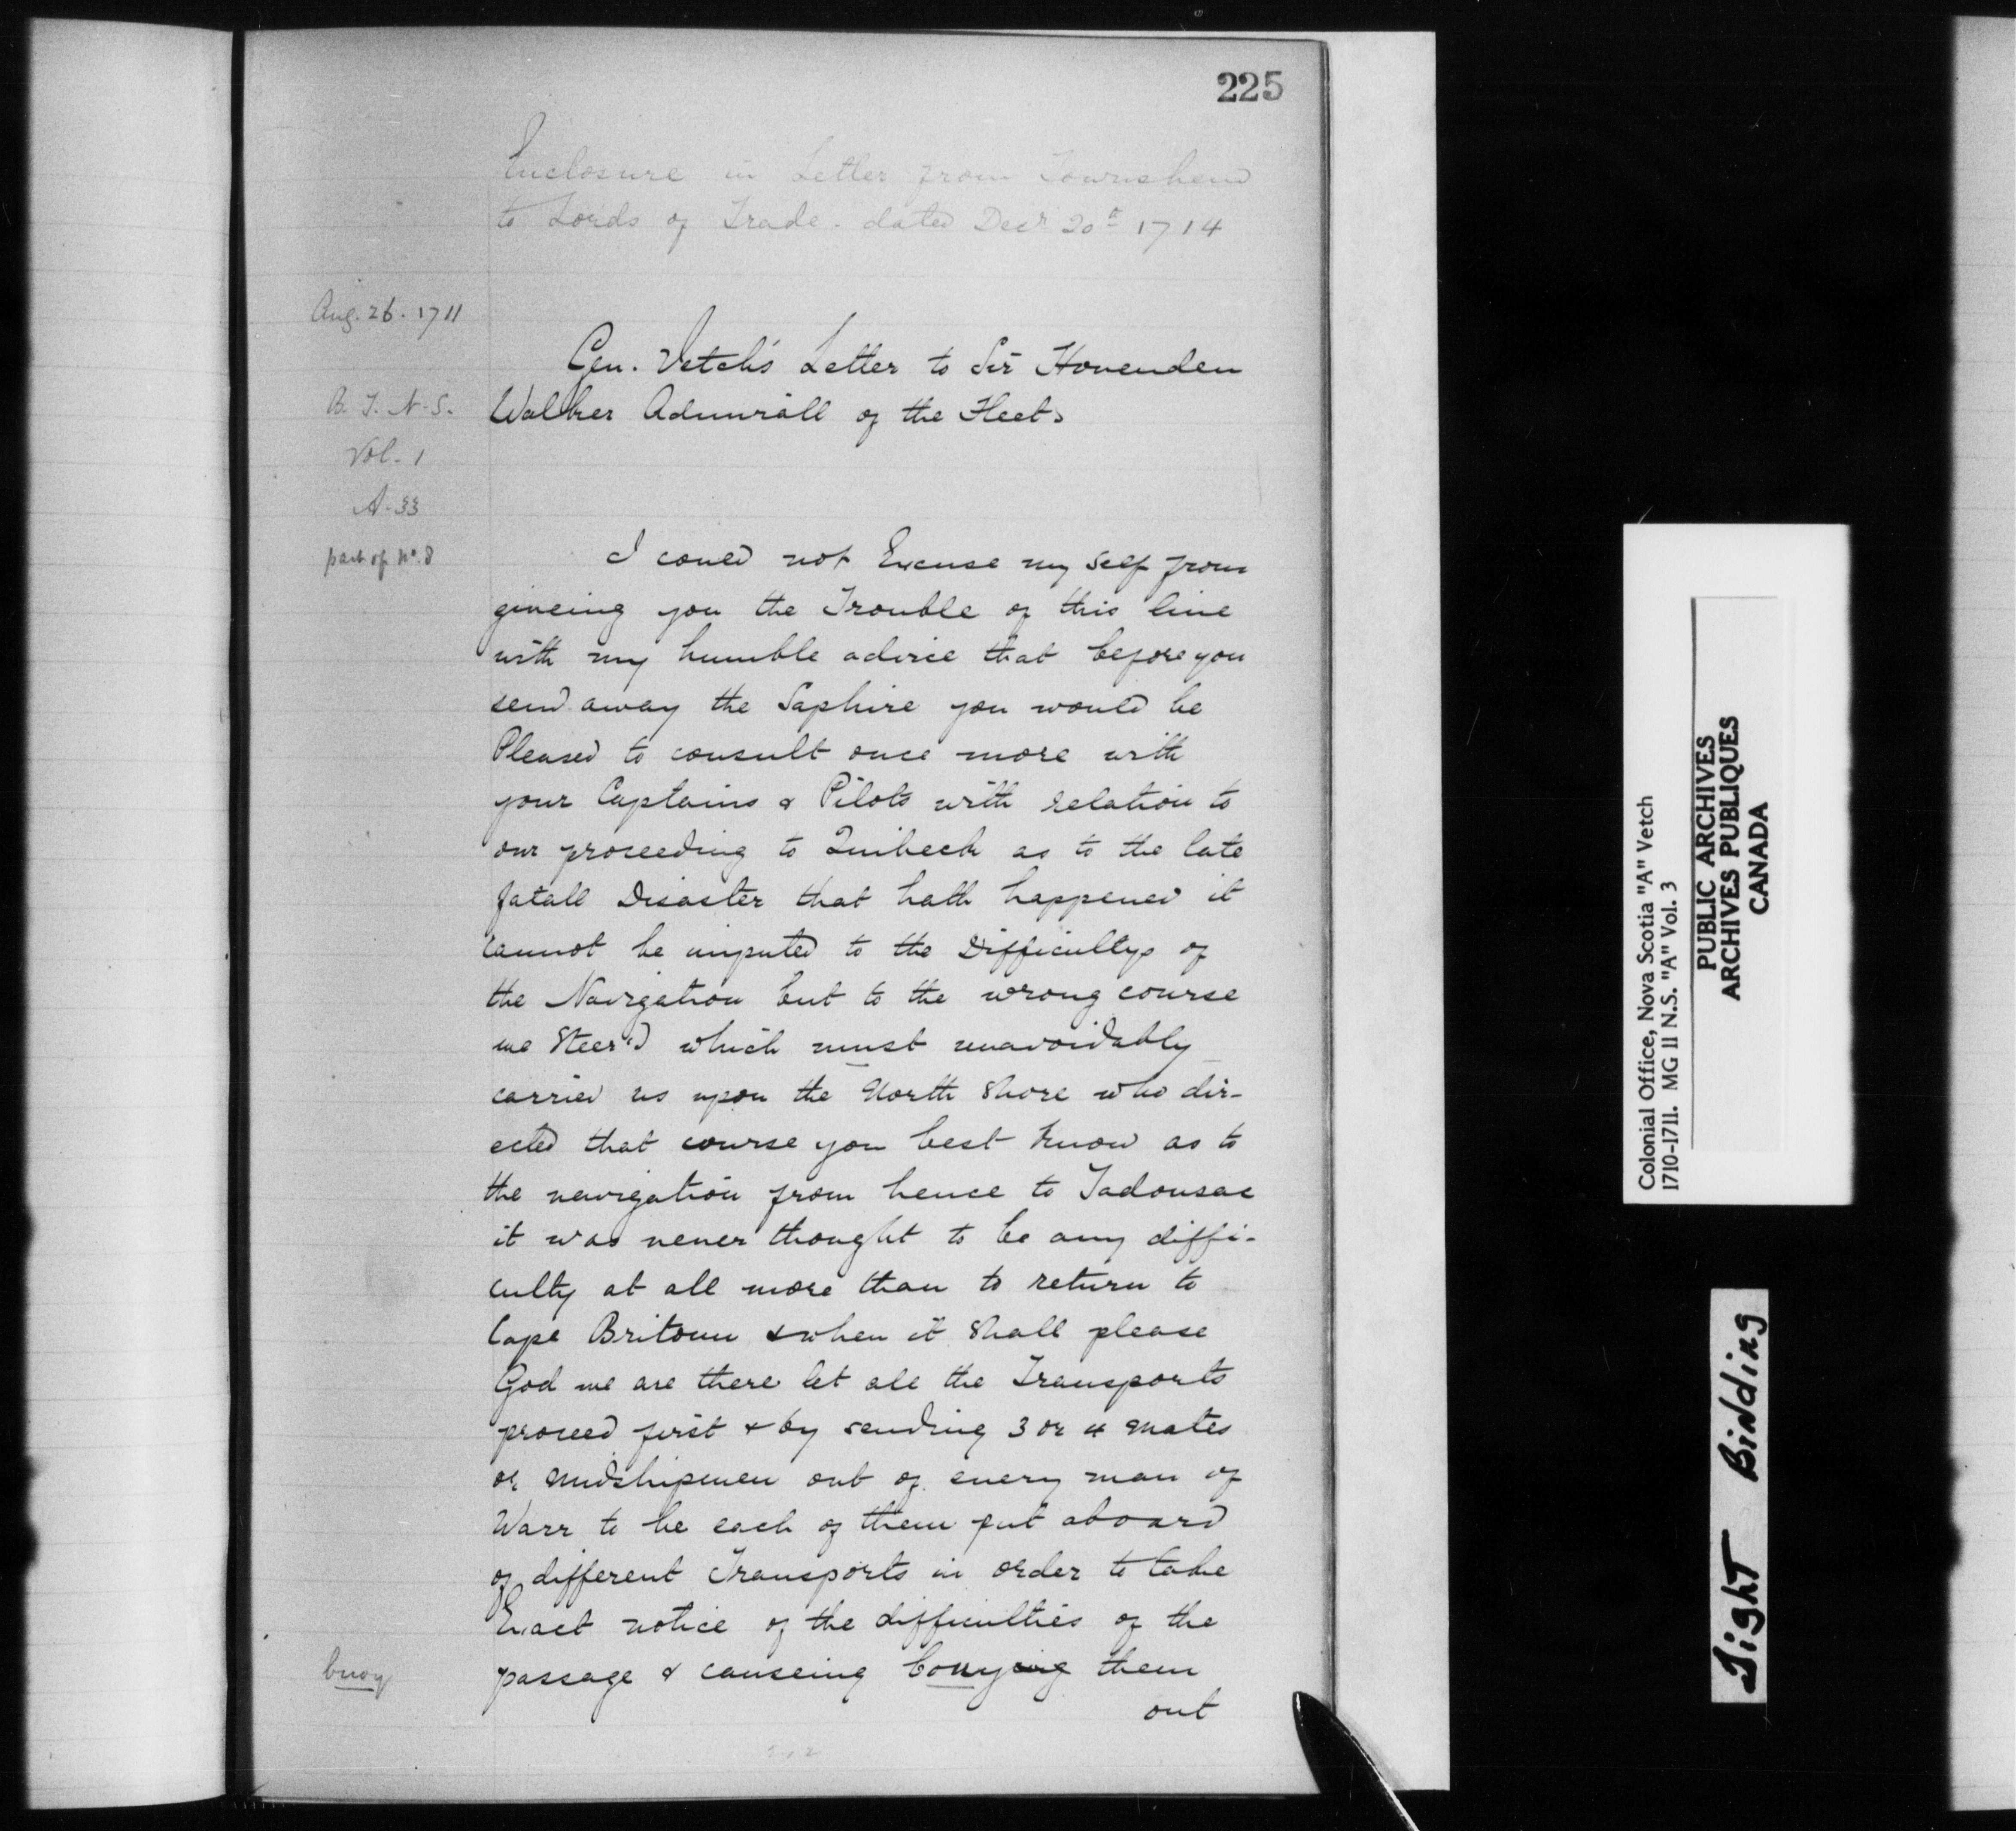 225
Enclosure in Letter from Townshend
to Lords of Trade. dated Decr 20th 1714
Aug. 26. 1711
Gen. Vetch's Letter to Sir Hovenden
Walker Admirall of the Fleet.
B. T. N. S.
Vol. 1
A. 33
part of No. 8
I could not Excuse my self from
giveing you the Trouble of this line
with my humble advice that before you
send away the Saphire you would be
Pleased to consult once more with
your Captains & Pilots with relation to
our proceeding to Quibeck as to the late
fatall Disaster that hath happened it
cannot be imputed to the Difficultys of
the Navigation but to the wrong course
we Steer'd which must unavoidably
carried us upon the North Shore who dir-
ected that course you best know as to
the navigation from hence to Tadousac
it was never thought to be any diffi-
culty at all more than to return to
Cape Britoun & when it shall please
God we are there let all the Transports
proceed first & by sending 3 or 4 Mates
or Midshipmen out of every man of
Warr to be each of them put aboard
of different Transports in order to take
Exact notice of the difficulties of the
passage & causeing bouying them
out
buoy
Colonial Office, Nova Scotia "A" Vetch
1710-1711. MG 11 N.S. "A" Vol. 3
PUBLIC ARCHIVES
ARCHIVES PUBLIQUES
CANADA
Tight Binding